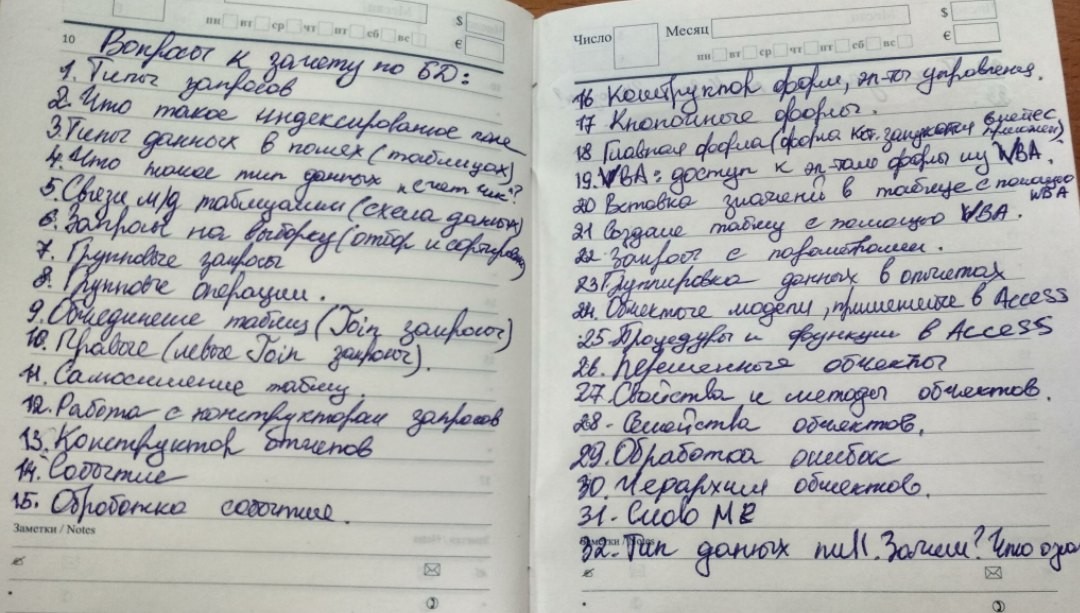 $
пн вт ср чт пт сб вс
€
10
Вопросы к зачету по БД:
1. Типы запросов
2. Что такое индексированное поле
3. Типы данных в полях (таблицах)
4. Что такое тип данных счетчик?
5. Связи м/д таблицами (схема данных)
6. Запросы на выборку (отбор и сортировка)
7. Групповые запросы
8. Групповые операции.
9. Объединение таблиц (Join запросы)
10. Правые (левые Join запросы).
11. Самосоединение таблиц
12. Работа с конструктором запросов
13. Конструктор отчетов
14. Событие
15. Обработка событие.
Заметки / Notes
Число
Месяц
$
пн вт ср чт пт сб вс
€
16 Конструктор форм, эл-ты управления.
17 Кнопочные формы.
18 Главная форма (форма кот. запускается вместе с прилож)
19. VBA: доступ к эл-там формы из VBA.
20 Вставка значений в таблице с помощью VBA
21 Создание таблиц с помощью VBA.
22 Запросы с параметрами.
23 Группировка данных в отчетах
24. Объектные модели, применяемые в Access
25. Процедуры и функции в Access
26. Переменные объекты
27. Свойства и методы объектов.
28. Семейства объектов.
29. Обработка ошибок
30. Иерархия объектов.
31. Слово ME
Заметки / Notes
32. Тип данных null. Зачем? Что